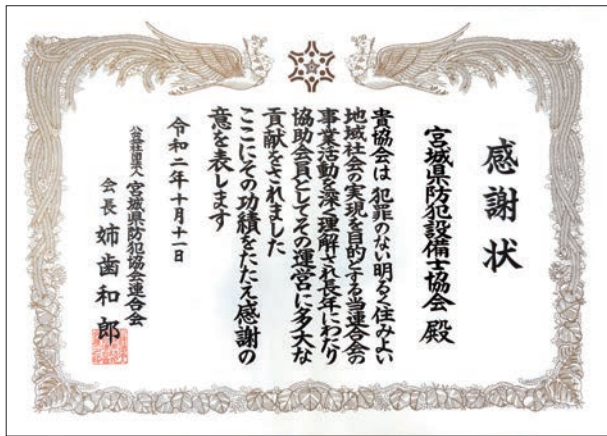 感謝状
宮城県防犯設備士協会 殿
貴協会は 犯罪のない明るく住みよい
地域社会の実現を目的とする当連合会の
事業活動を深く理解され長年にわたり
協助会員としてその運営に多大な
貢献をされました
ここにその功績をたたえ感謝の
意を表します
令和二年十月十一日
公益社団法人 宮城県防犯協会連合会
会長 姉歯和郎